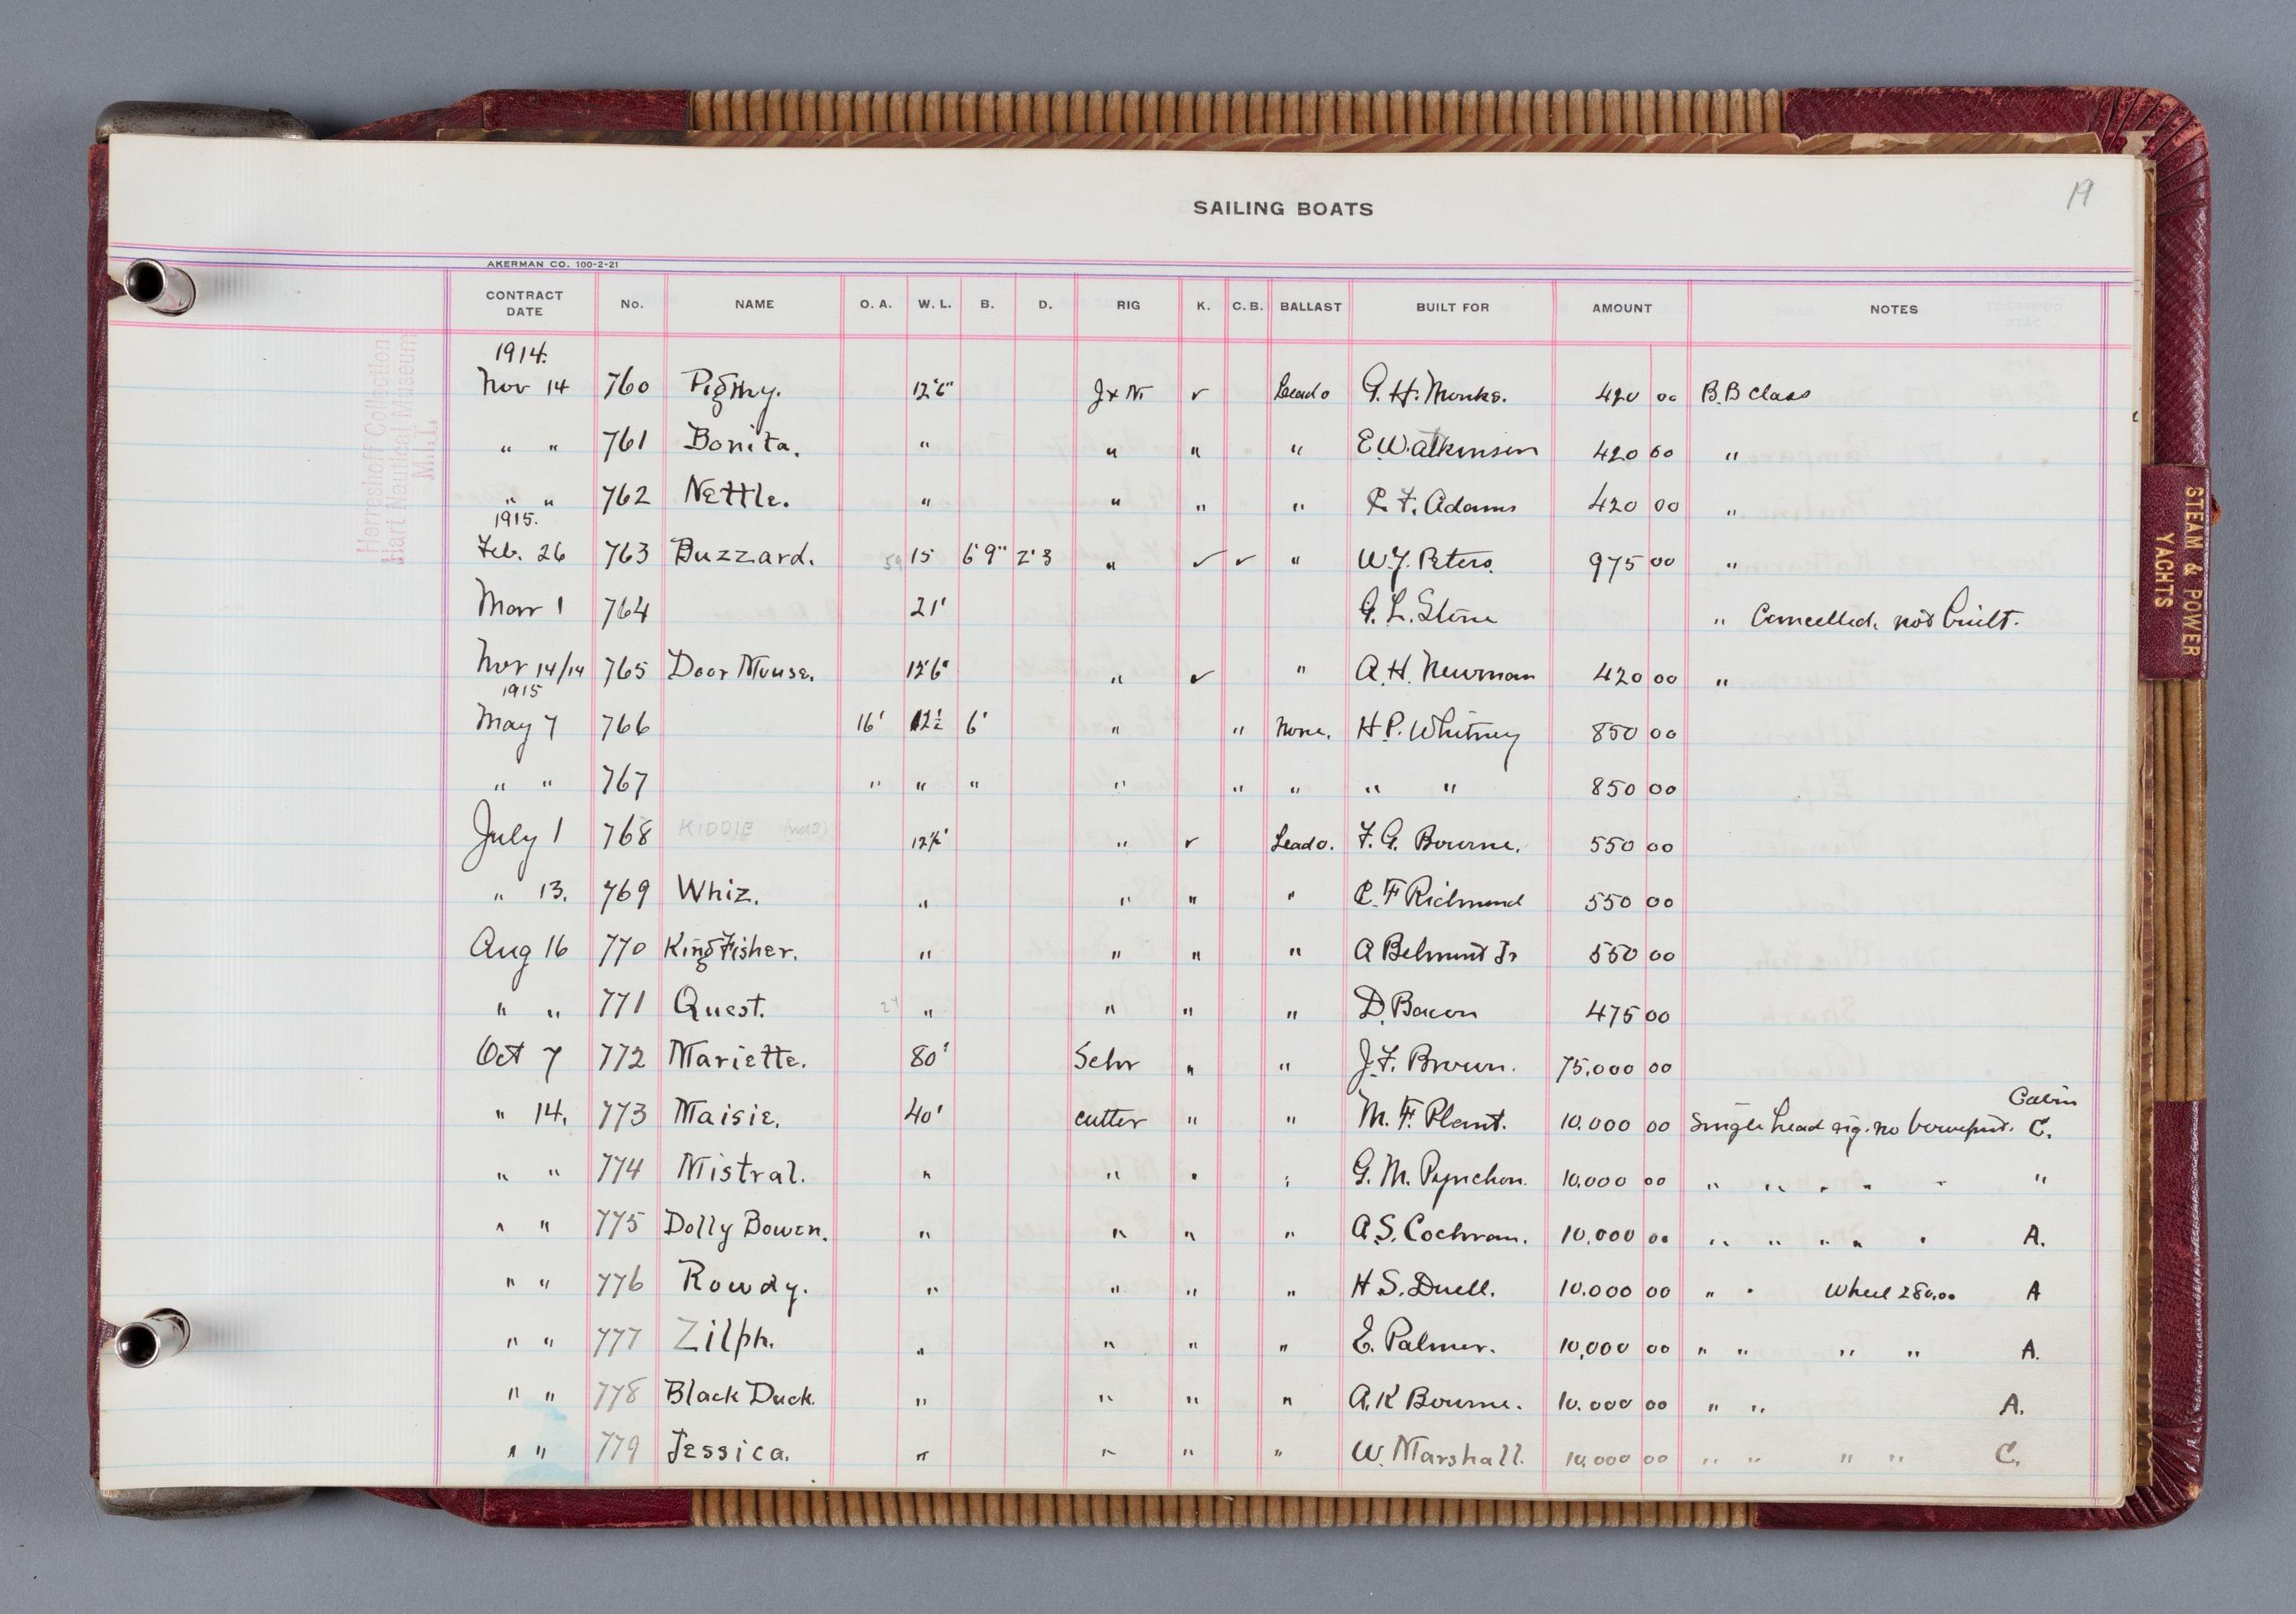 SAILING BOATS
19
AKERMAN CO. 100-2-21
CONTRACT DATE No. NAME O. A. W. L. B. D. RIG K. C. B. BALLAST BUILT FOR AMOUNT NOTES
1914.
Nov 14 760 Pigmy. 12'6" J & M ✓ Lead o G. H. Monks. 420 00 B.B class
" " 761 Bonita. " " " " E W Atkinson 420 00 "
" " 762 Nettle. " " " " C. F. Adams 420 00 "
1915.
Feb. 26 763 Buzzard. 15 6'9" 2'3 " ✓ ✓ " W. J. Peters. 975 00 "
Mar 1 764 21' G. L. Stone " Cancelled, not built.
Nov 14/14 765 Door Mouse. 12'6" " ✓ " A. H. Newman 420 00 "
1915
May 7 766 16' 12½ 6' " " None. H. P. Whitney 850 00
" " 767 " " " " " " " " 850 00
July 1 768 KIDDIE 12½' " ✓ Lead o. F. G. Bourne. 550 00
" 13. 769 Whiz. " " " " C. F Richmond 550 00
Aug 16 770 King Fisher. " " " " A Belmont Jr 550 00
" " 771 Quest. 24 " " " " D. Bacon 475 00
Oct 7 772 Mariette. 80' Schr " " J. F. Brown. 75,000 00
Cabin
" 14. 773 Maisie. 40' cutter " " M. F. Plant. 10.000 00 Single head rig. no bowsprit. C.
" " 774 Mistral. " " " " G. M. Pynchon. 10,000 00 " " " " " "
" " 775 Dolly Bowen. " " " " A. S. Cochran. 10,000 00 " " " " " A.
" " 776 Rowdy. " " " " H. S. Duell. 10.000 00 " " Wheel 280.00 A
" " 777 Zilph. " " " " E. Palmer. 10,000 00 " " " " A.
" " 778 Black Duck. " " " " A. K Bourne. 10.000 00 " " A.
" " 779 Jessica. " " " " W. Marshall. 10,000 00 " " " " C.
Herreshoff Collection
Hart Nautical Museum
M.I.T.
STEAM & POWER
YACHTS